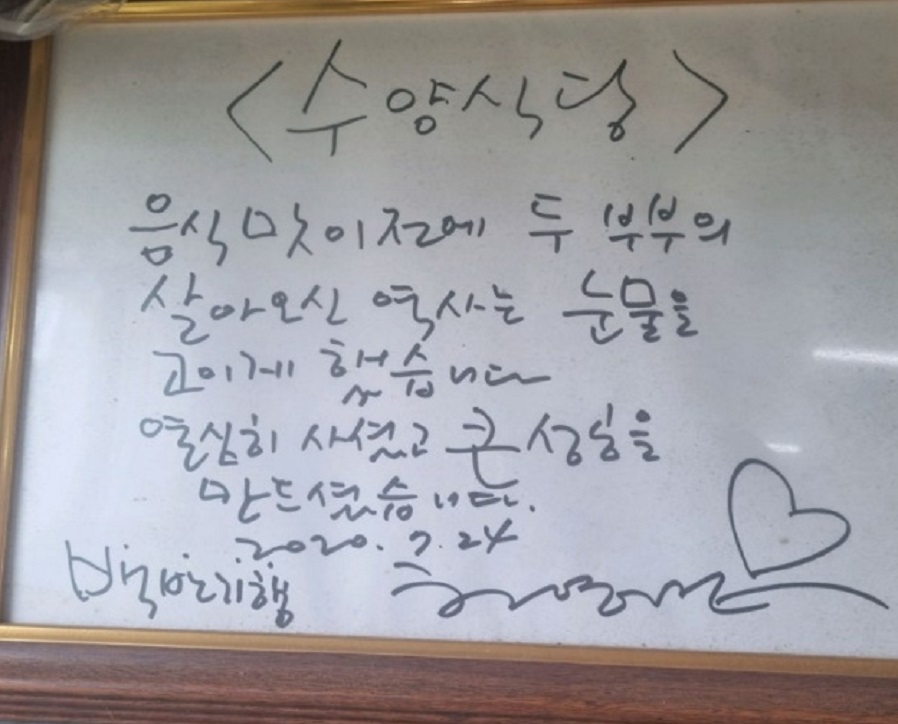 <수양식당>
음식 맛이전에 두 부부의
살아오신 역사는 눈물을
고이게 했습니다
열심히 사셨고 큰 성님을
만드셨습니다.
2020. 7. 24
백반기행 허영만